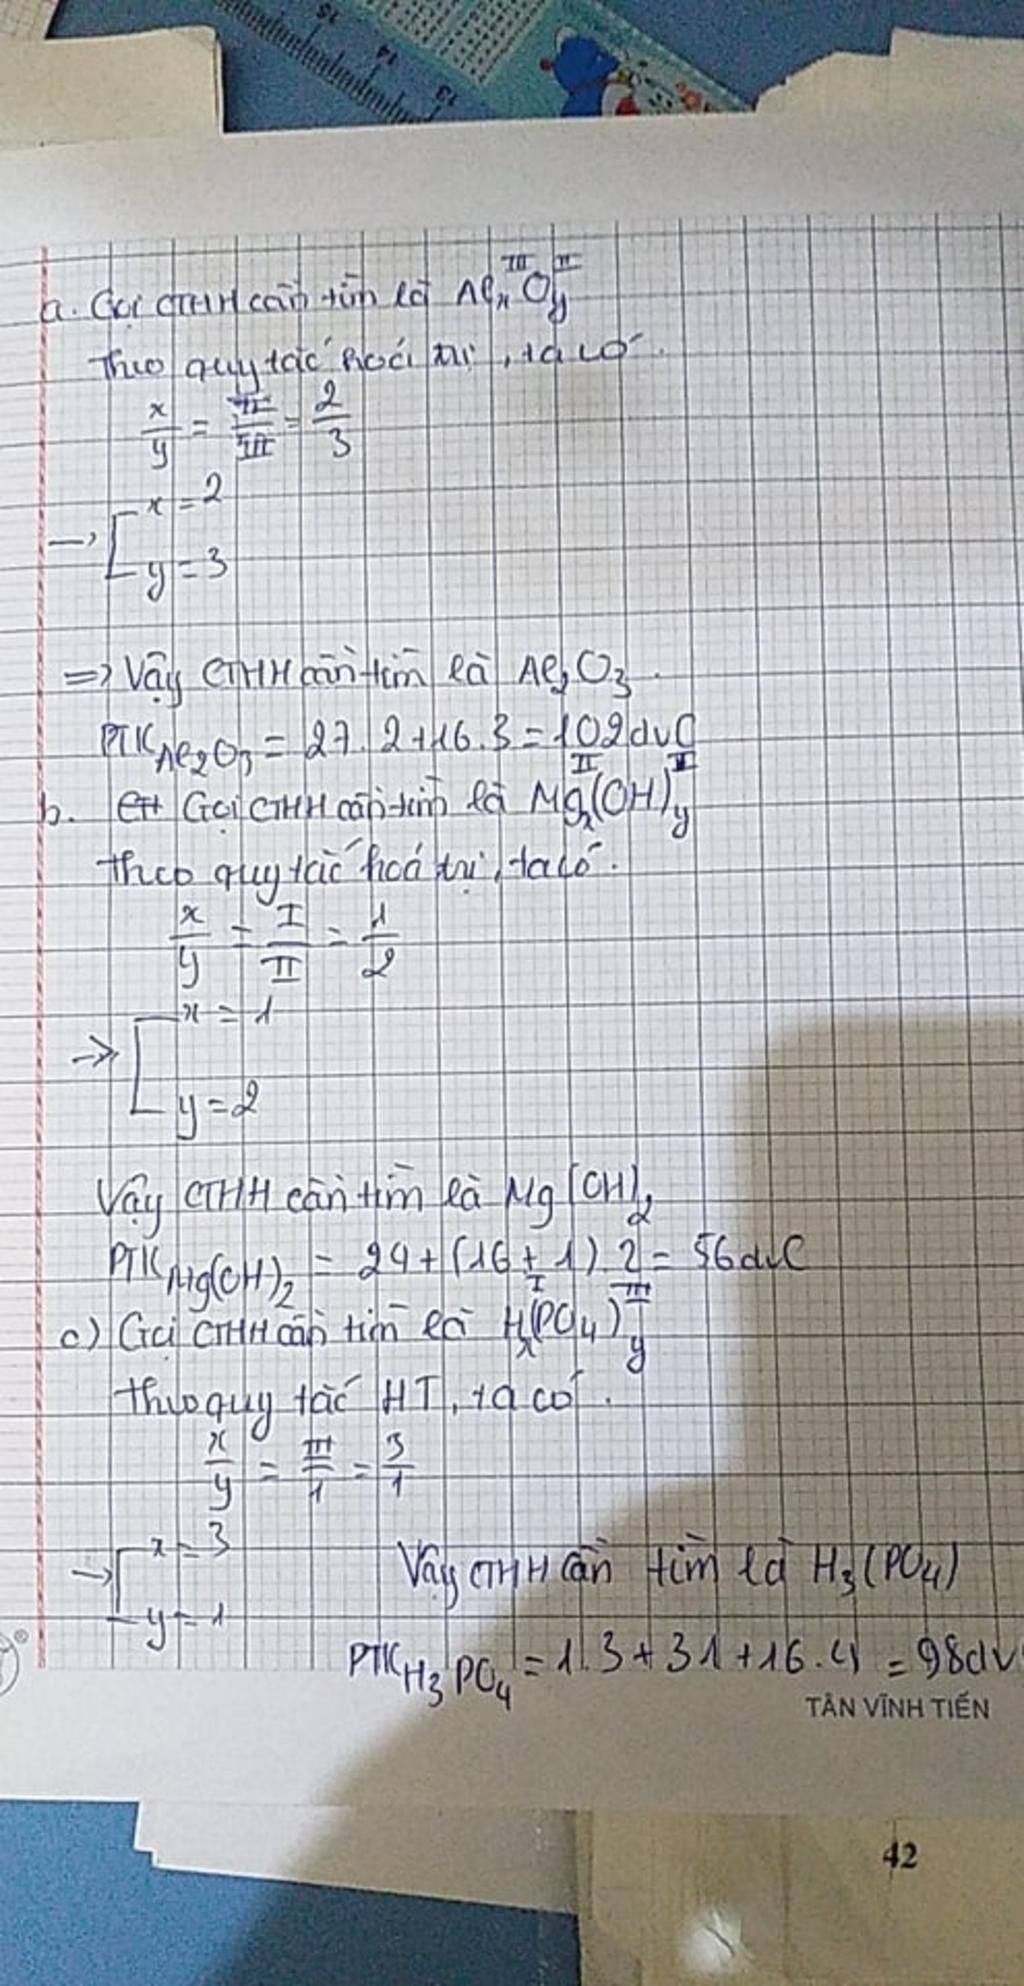 15
14
13
a. Gọi CTHH cần tìm là Al_x^III O_y^II
Theo quy tắc hoá trị, ta có
x/y = II/III = 2/3
→ [ x = 2
y = 3
=> Vậy CTHH cần tìm là Al2O3.
PTK Al2O3 = 27.2+16.3 = 102 dvC
b. Gọi CTHH cần tìm là Mg_x^II (OH)_y^I
Theo quy tắc hoá trị, ta có.
x/y = I/II = 1/2
→ [ x = 1
y = 2
Vậy CTHH cần tìm là Mg(OH)2
PTK Mg(OH)2 = 24+(16+1).2 = 56 dvC
c) Gọi CTHH cần tìm là H_x^I (PO4)_y^III
Theo quy tắc HT, ta có.
x/y = III/1 = 3/1
→ [ x = 3
y = 1
Vậy CTHH cần tìm là H3(PO4)
PTK H3PO4 = 1.3+31+16.4 = 98 dv
TÂN VĨNH TIẾN
42